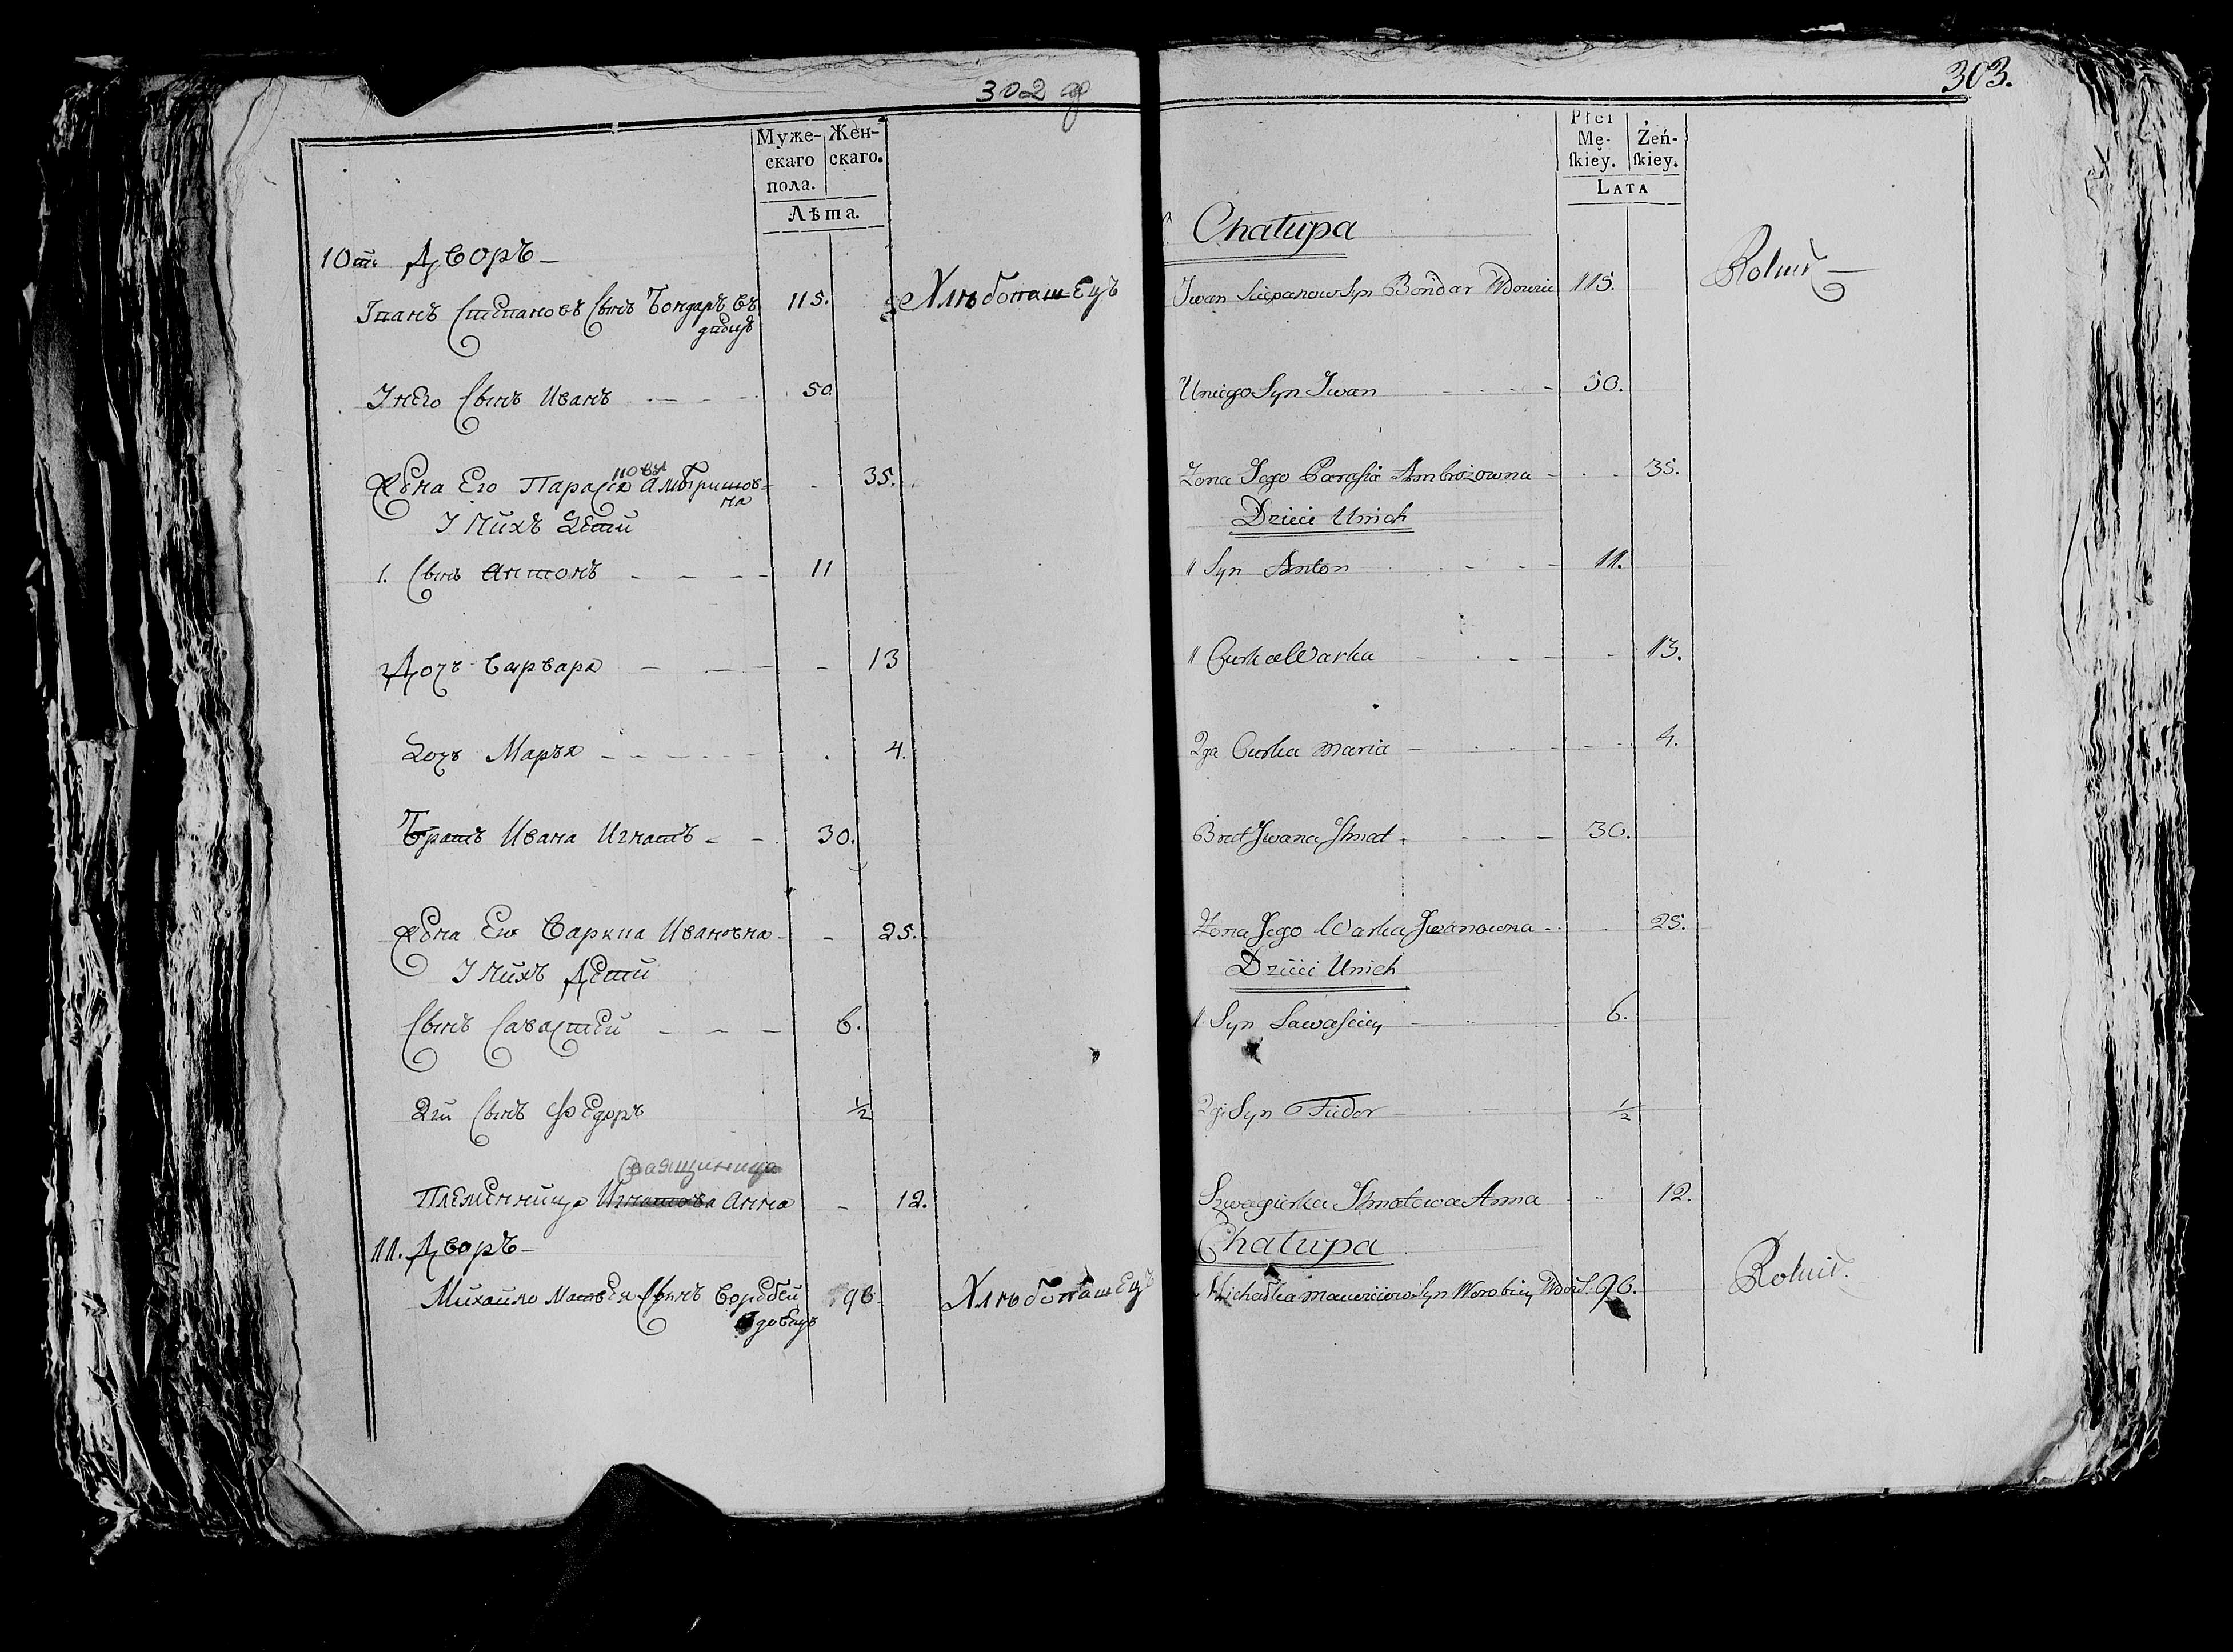 302 об
Муже- Жен-
скаго скаго.
пола.
Лѣта.
10й Дворъ
Іванъ Степановъ Сынъ Бондаръ въ 115. Хлѣбопашецъ
Iнего Сынъ Иванъ 50
Жена Его Парасія Амбришов- 35.
на
I Нихъ Дети
1. Сынъ Антонъ 11
Дочь Варвара 13
Дочь Марья 4.
Братъ Ивана Игнатъ 30.
Жена Его Варкиа Ивановна 25.
I Нихъ Дети
Сынъ Савастей 6.
2й Сынъ Федоръ ½
Племенница Игнатова Анна 12.
11. Дворъ
Михайло Матвея Сынъ Воробей 96 Хлѣбопашецъ
Вдовецъ
303.
Płci
Mę- Żeń-
ſkiéy. ſkiey.
LATA
Chałupa
Iwan Sciepanow Syn Bondar Wdowiec 115. Rolnik
Uniego Syn Iwan 50.
Zona Jego Parasia Ambrozowna 35.
Dzieci Unich
1 Syn Anton 11.
1 Curka Warka 13.
2ga Curka Maria 4.
Brat Iwana Ihnat 30.
Zona Jego Warka Iwanowna 25.
Dzieci Unich
1 Syn Sawasciey 6.
2gi Syn Fiedor ½
Szwagierka Ihnatowa Anna 12.
Chałupa
Michałka Macieiow Syn Worobiey Wdow. 96. Rolnik.